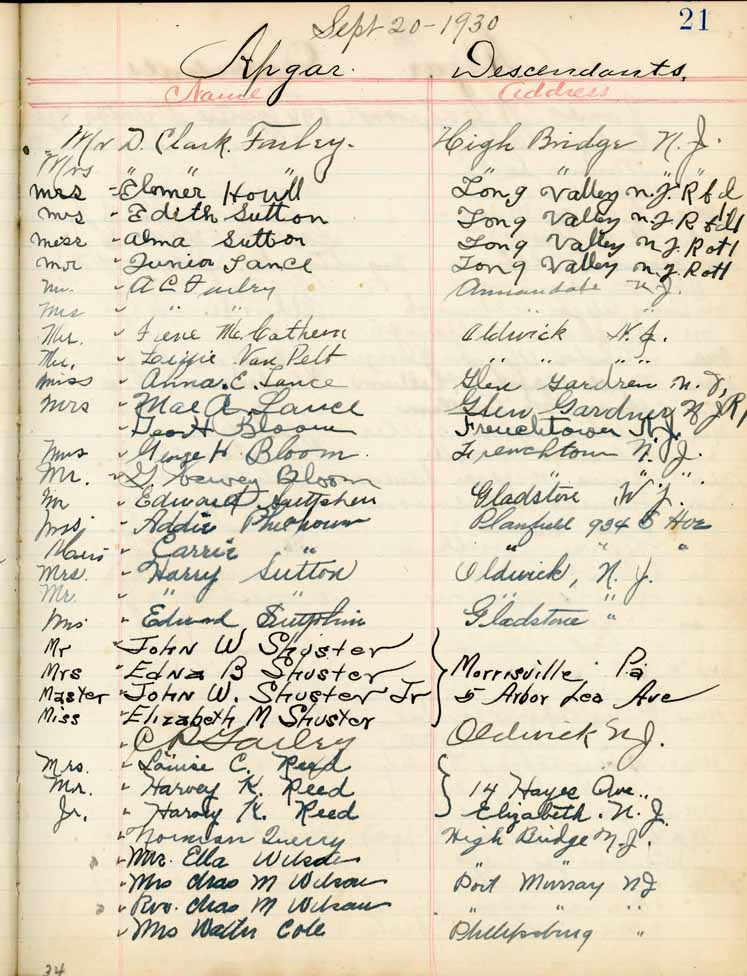 Sept 20-1930 21
Apgar Descendants.
Name Address
Mr D. Clark. Farley. High Bridge N. J.
Mrs " " " "
Mrs Elomer Howll Long Valley n.J. R f d
mrs Edith Sutton Long Valley n.J R f d 1
miss alma Sutton Long Valley n J. Rot1
mr Junior Lance Long Valley n.J. Rot1
Mr. A C Farley Annandale N J.
Mrs " " " "
Mr. Irene McCathern Oldwick N.J.
Mr. Lizzie Van Pelt " " "
miss Anna. E. Lance Glen Gardren n. J,
mrs Mae A. Lance Glen Gardner N J R
Geo H Bloom Frenchtown N.J.
Mrs George H. Bloom. Frenchtown N. J.
Mr. G Dewey Bloom " " "
Mr Edward Sutphen Gladstone N J.
Addie Plainfield 934 5 Ave
Carrie " " " "
Mrs. Harry Sutton Oldwick, N. J.
Mr. " " " "
Mrs Edward Sutphin Gladstone "
Mr John W Shuster
Mrs Edna B Shuster Morrisville Pa
Master John W. Shuster Jr 5 Arbor Lea Ave
Miss Elizabeth M Shuster
C R Farley Oldwick N.J.
Mrs. Louise C. Reed
Mr. Harvey K. Reed 14 Hayes Ave.,
Jr. Harvey K. Reed Elizabeth. N. J.
Norman Querry High Bridge N.J.
Mrs. Ella Wilson " "
Mrs Chas M Wilson Port Murray NJ
Rev. Chas M Wilson " "
Mrs Walter Cole Phillipsburg "
34